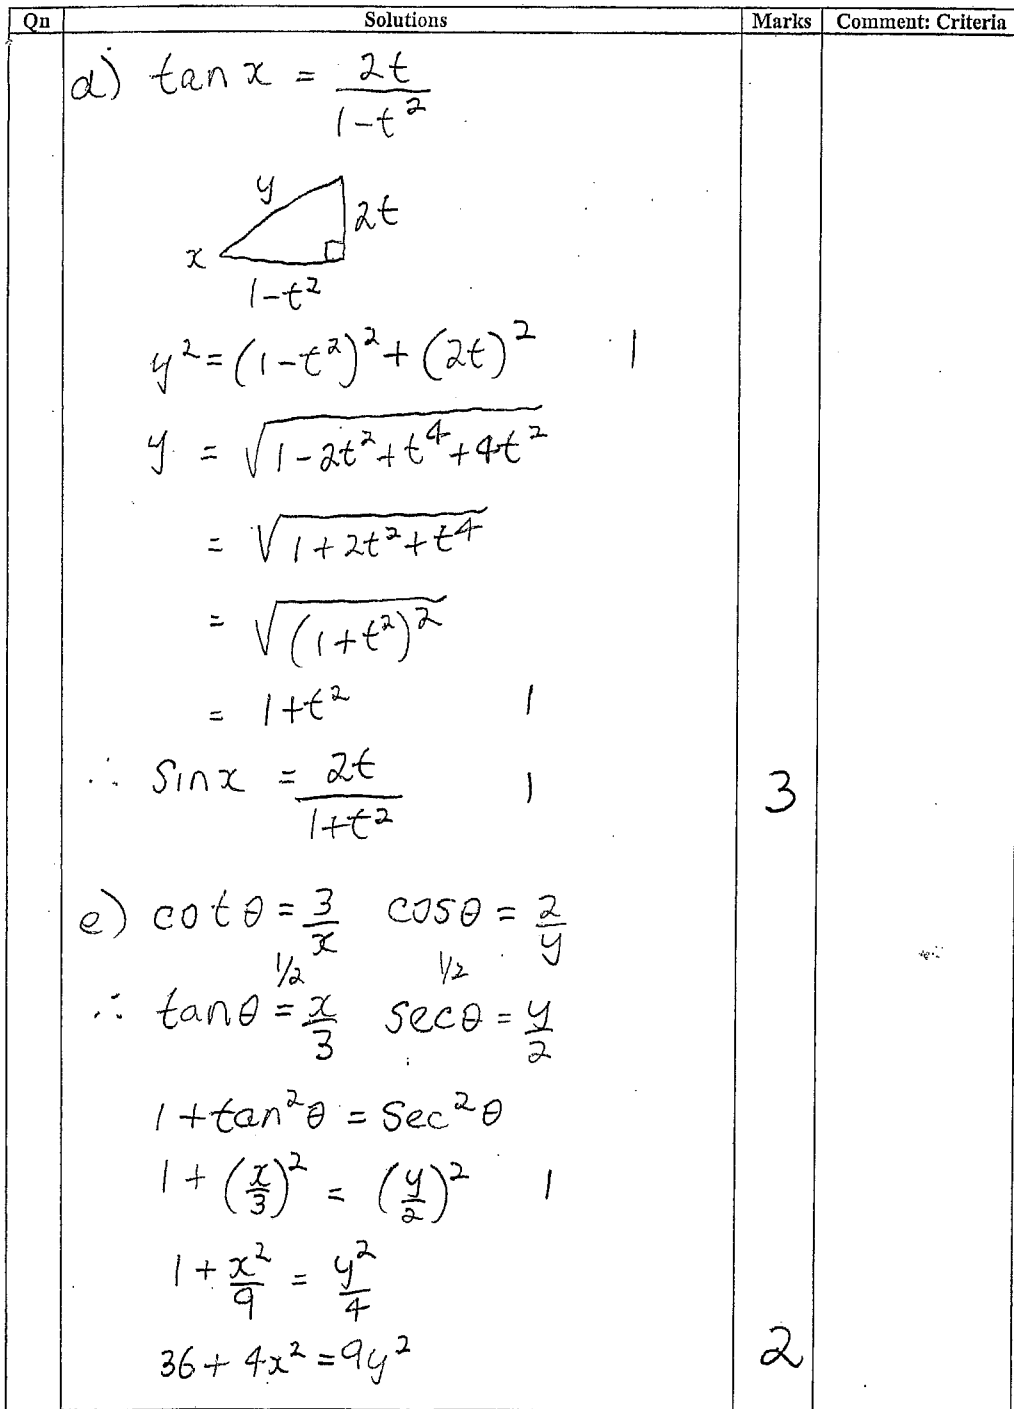 Qn Solutions Marks Comment: Criteria
d) tan x = 2t / (1-t²)
y
2t
x
1-t²
y² = (1-t²)² + (2t)² 1
y = √(1-2t²+t⁴+4t²)
= √(1+2t²+t⁴)
= √((1+t²)²)
= 1+t² 1
∴ sin x = 2t / (1+t²) 1 3
e) cot θ = 3/x cos θ = 2/y
1/2 1/2
∴ tan θ = x/3 sec θ = y/2
1 + tan²θ = sec²θ
1 + (x/3)² = (y/2)² 1
1 + x²/9 = y²/4
36 + 4x² = 9y² 2